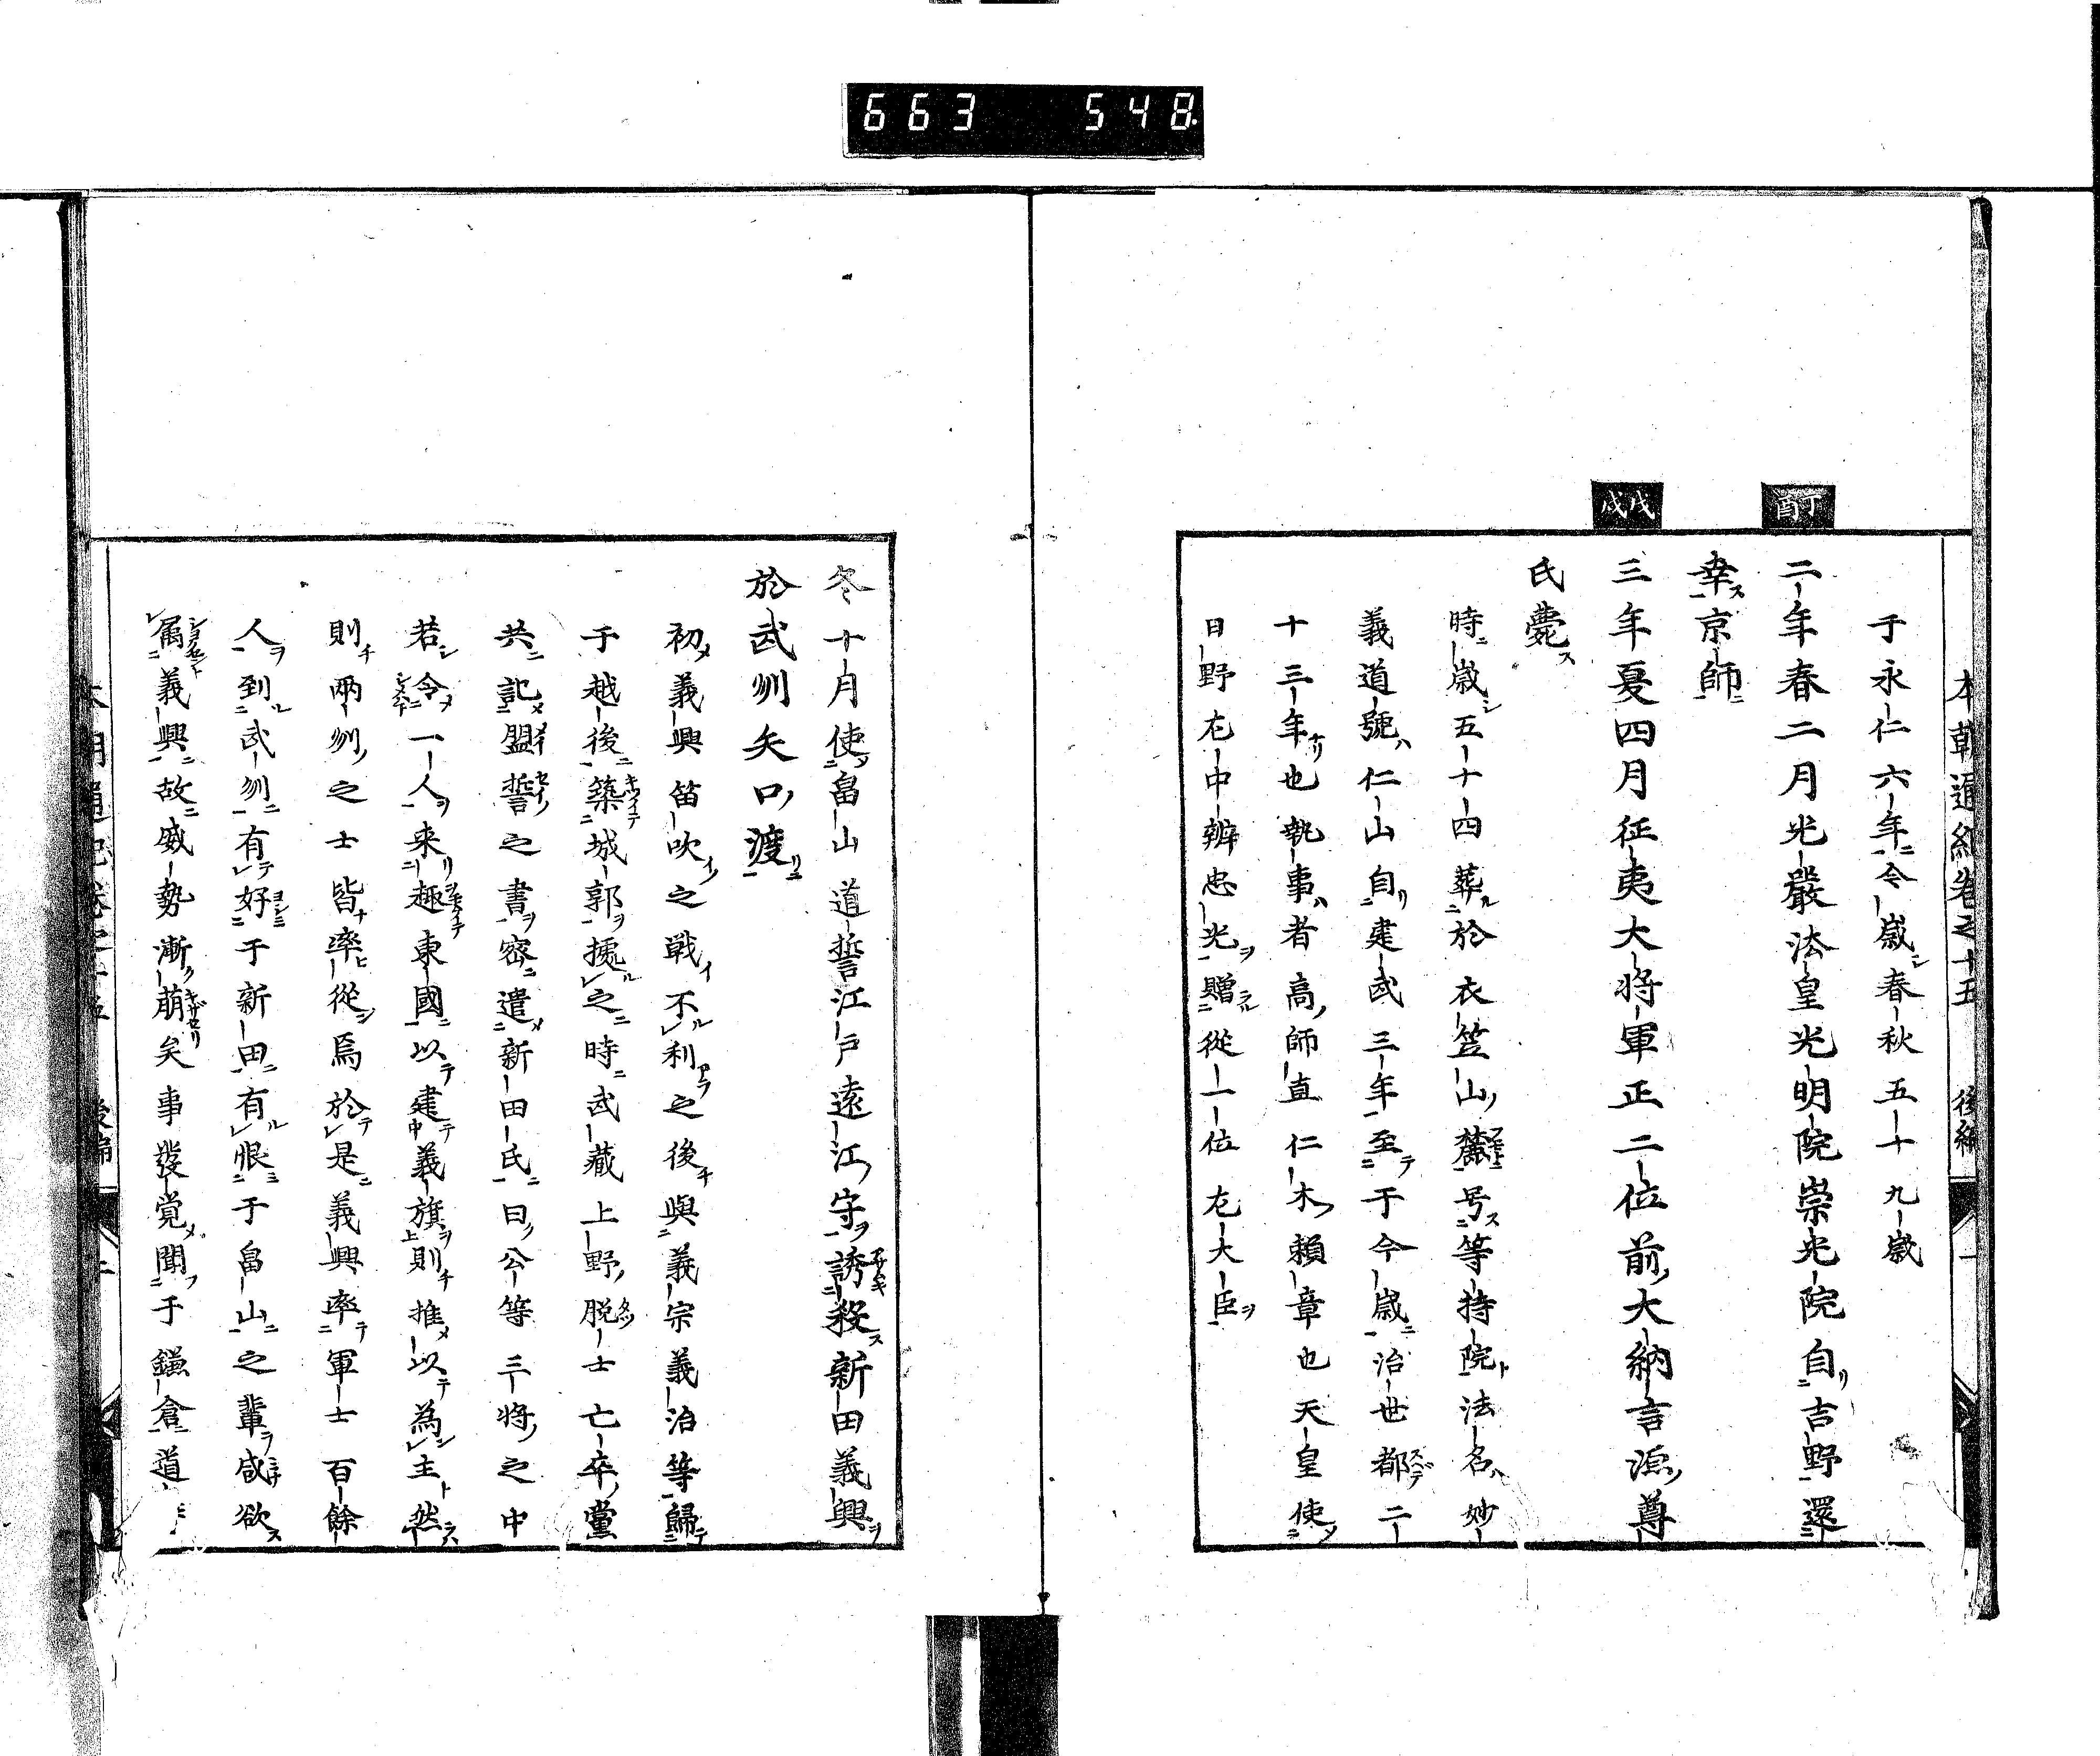 663 548
本朝通紀卷之十五 後編 一
丁酉
戊戌
于永仁六年今歲春秋五十九歲
二年春二月光嚴法皇光明院崇光院自吉野還
幸京師
三年夏四月征夷大将軍正二位前大納言源尊
氏薨
時歲五十四葬於衣笠山麓号等持院法名妙
義道號仁山自建武三年至于今歲治世都二
十三年也執事者高師直仁木頼章也天皇使
日野左中辨忠光贈從一位左大臣
冬十月使畠山道誓江戸遠江守誘殺新田義興
於武州矢口渡
初義興笛吹之戦不利之後與義宗義治等歸
于越後築城郭據之時武藏上野脱士亡卒黨
共記盟誓之書密遣新田氏曰公等三将之中
若令一人来趣東國以建義旗則推以為主然
則兩州之士皆率從焉於是義興率軍士百餘
人到武州有好于新田有恨于畠山之輩咸欲
属義興故威勢漸萌矣事發覚聞于鎌倉道